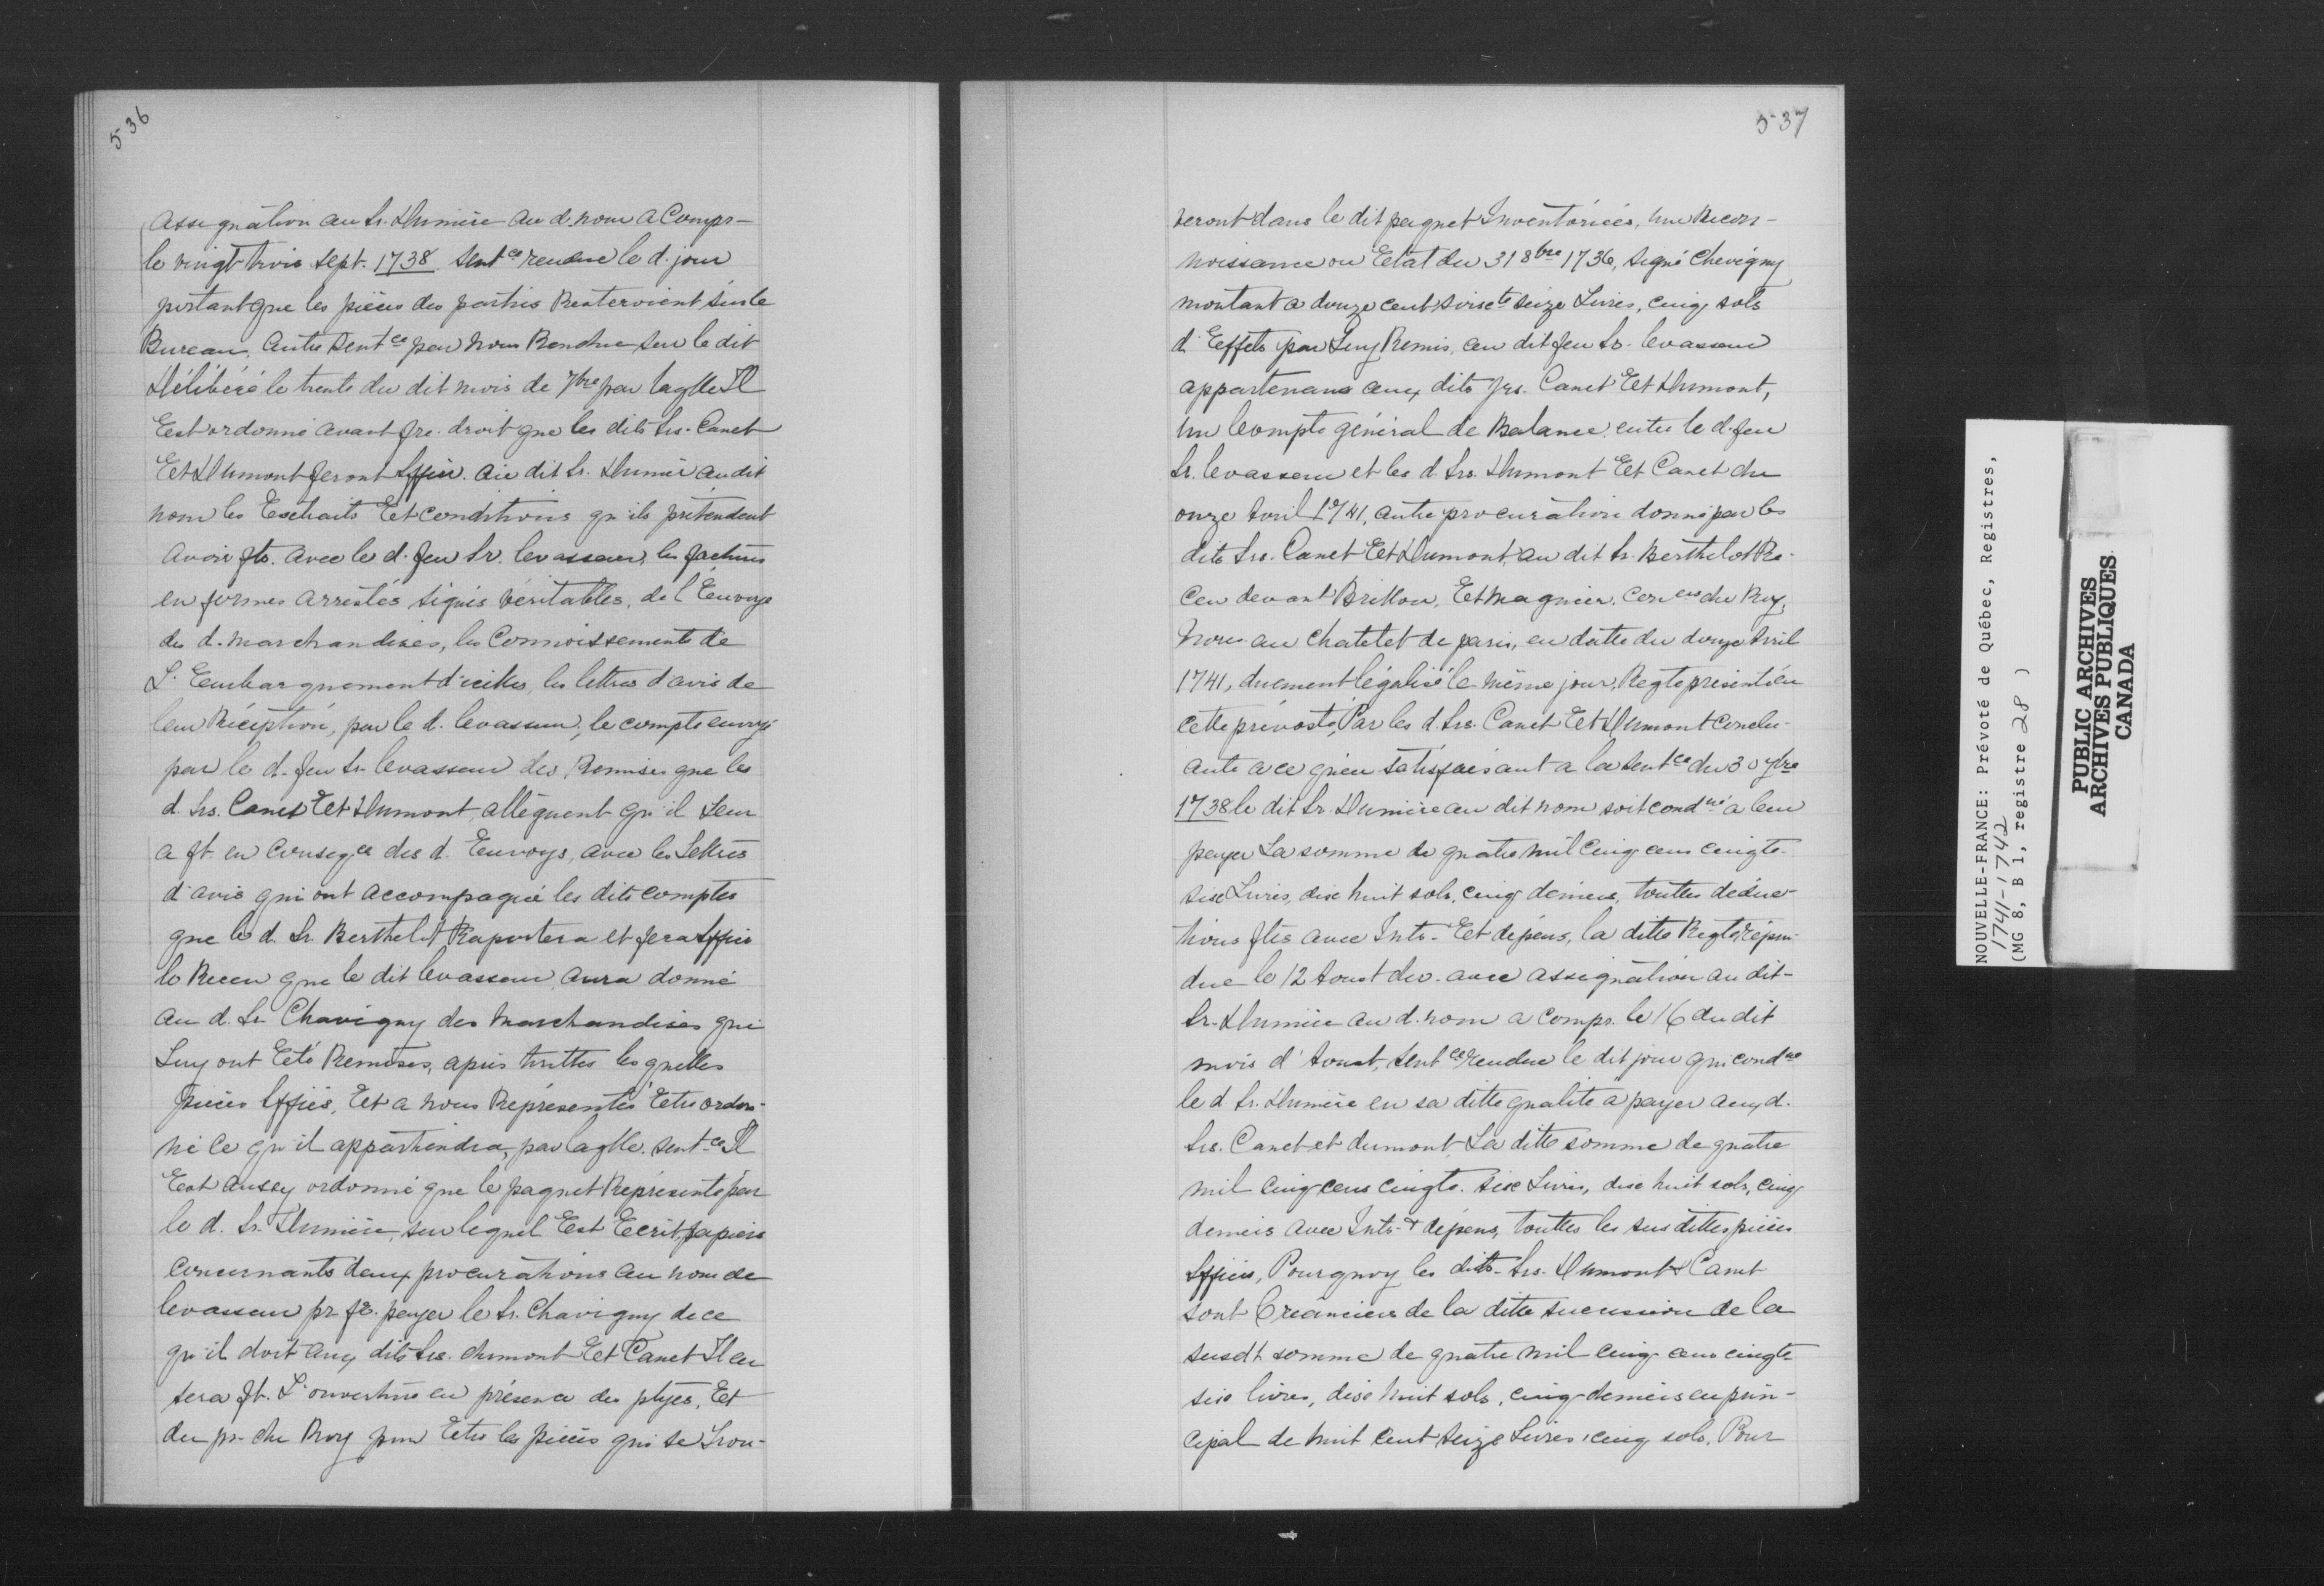 536
assignâtion au Sr. Lhumiere au d. nom a Compr-
le vingt trois Sept. 1738 Sentce rendue le d. jour
portant que les pièces des parties Resteroient sur le
Bureau, Autre Sentce par Nous Rendue sur le dit
Délibéré le trente du dit mois de 7bre par laqlle Il
Est ordonné avant fre. droit que les dits Srs. Canet
Et Dumont feront Sffier. au dit Sr. Lhumier au dit
nom les Extraits Et conditions qu'ils prétendent
avoir fts. avec le d. feu Sr. levasseur, les factures
en formes arrestés signés véritables, de l'Envoye
des d. marchandises, les Connoissements de
L'Embarquement d'icilles, les lettres d'avis de
leur Réception, par le d. levasseur, le compte envoyé
par le d. feu Sr. levasseur des Remises que les
d. Srs. Canet Et Dumont, allèguent qu'il Leur
a ft. en Conseqce des d. Envoys, avec les Lettres
d'avis qui ont accompagné les dits comptes
que le d. Sr. Berthelot Raportera et fera Sffier
le Receu que le dit levasseur aura donné
au d. Sr. Chavigny des Marchandises qui
Luy ont Eté Remises, après touttes les quelles
pièces Sffiés, Et a nous Représentés Etre ordon-
né ce qu'il appartiendra, par laqlle. Sentce Il
Est aussy ordonné que le paquet Représenté par
le d. Sr. Lhumiere, sur lequel Est Ecrit, papiers
Concernants deux procurâtions au nom de
levasseur pr fe. payer le Sr. Chavigny de ce
qu'il doit aux dits Srs. dumont Et Canet Il en
sera ft. L'ouverture en présence des ptyes, Et
du pr. du Roy pour Etre les pièces qui se Trou-
537
veront dans le dit paquet Inventoriées, Une Recon-
noissance ou Etat du 31 8bre 1736, signé Chevigny
montant a douze cent soixte seize Livres, cinq sols
d'Effets par Luy Remis, au dit feu Sr. levasseur
appartenans aux dits Srs. Canet Et Dumont,
Un Compte général de Balance entre le d. feu
Sr. levasseur et les d. Srs. Dumont Et Canet du
onze Avril 1741, autre procurâtion donné par les
dits Srs. Canet Et Dumont, au dit Sr. Berthelot Re-
Ceu devant Brillon, Et Magnier, Coners du Roy,
Nores au Chatelet de paris, en datte du douze Avril
1741, duement légalisé le même jour, Reqte présenté en
cette prévosté, Par les d. Srs. Canet Et Dumont conclu-
ante a ce qu'en satisfaisant a la Sentce du 30 7bre
1738 le dit Sr. Lhumiere au dit nom soit condné a leur
payer La somme de quatre mil Cinq cens cinqte.
six Livres, dix huit sols, cinq deniers, touttes deduc-
tions ftes avec Ints. Et dépens, la ditte Reqte répon-
due le 12 Aoust der. avec assignâtion au dit
Sr. Lhumiere au d. nom a Compr. le 16 du dit
mois d'Aoust, Sentce rendue le dit jour qui condne
le d Sr. Lhumiere en sa ditte qualité a payer aux d.
Srs. Canet et dumont, La ditte somme de quatre
mil cinq cens cinqte. six Livres, dix huit sols, cinq
deniers avec Ints. & dépens, touttes les sus dittes pièces
Sffiées, Pourquoy les dits. Srs. Dumont & Canet
sont Créanciers de la ditte succession de la
susdt somme de quatre mil cinq cens cinqte
six livres, dix huit sols, cinq deniers en prin-
cipal de huit cent seize Livres, cinq sols, Pour
NOUVELLE-FRANCE: Prévoté de Québec, Registres,
1741-1742
(MG 8, B 1, registre 28 )
PUBLIC ARCHIVES
ARCHIVES PUBLIQUES
CANADA